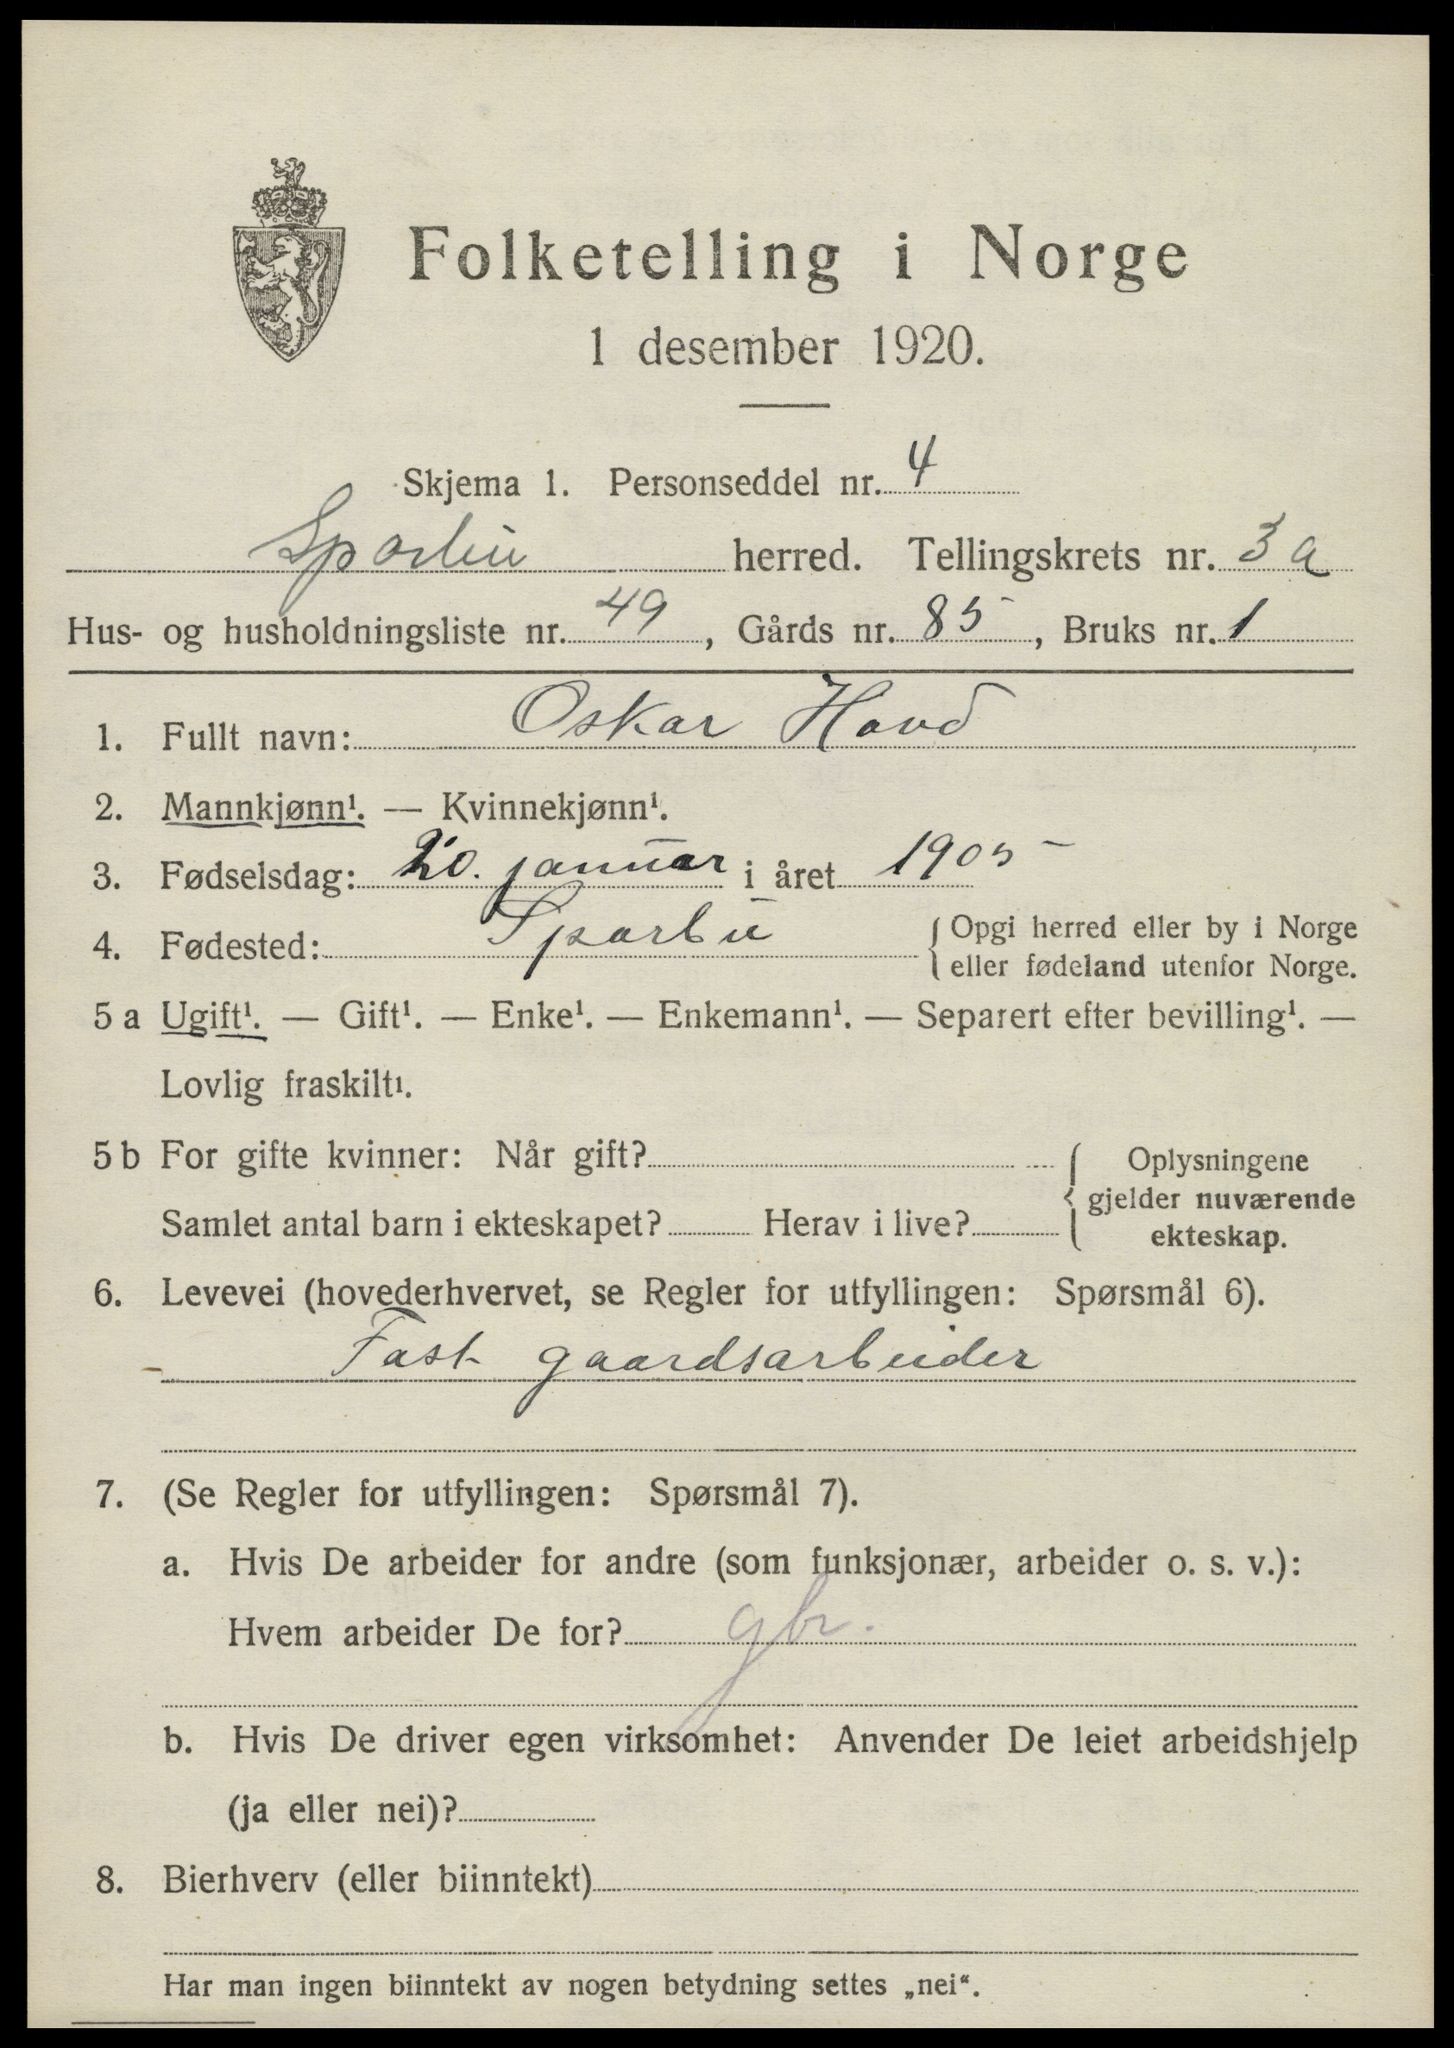 Folketelling i Norge
1 desember 1920.
Skjema 1. Personseddel nr. 4
Sparbu herred. Tellingskrets nr. 3a
Hus- og husholdningsliste nr. 49, Gårds nr. 85, Bruks nr. 1
1. Fullt navn: Oskar Havd
2. Mannkjønn¹. — Kvinnekjønn¹.
3. Fødselsdag: 20. januar i året 1905
4. Fødested: Sparbu { Opgi herred eller by i Norge
eller fødeland utenfor Norge.
5 a Ugift¹. — Gift¹. — Enke¹. — Enkemann¹. — Separert efter bevilling¹. —
Lovlig fraskilt¹.
5 b For gifte kvinner: Når gift? { Oplysningene
gjelder nuværende
Samlet antal barn i ekteskapet? Herav i live?
ekteskap.
6. Levevei (hovederhvervet, se Regler for utfyllingen: Spørsmål 6).
Fast gaardsarbeider
7. (Se Regler for utfyllingen: Spørsmål 7).
a. Hvis De arbeider for andre (som funksjonær, arbeider o. s. v.):
Hvem arbeider De for? gbr.
b. Hvis De driver egen virksomhet: Anvender De leiet arbeidshjelp
(ja eller nei)?
8. Bierhverv (eller biinntekt)
Har man ingen biinntekt av nogen betydning settes „nei“.